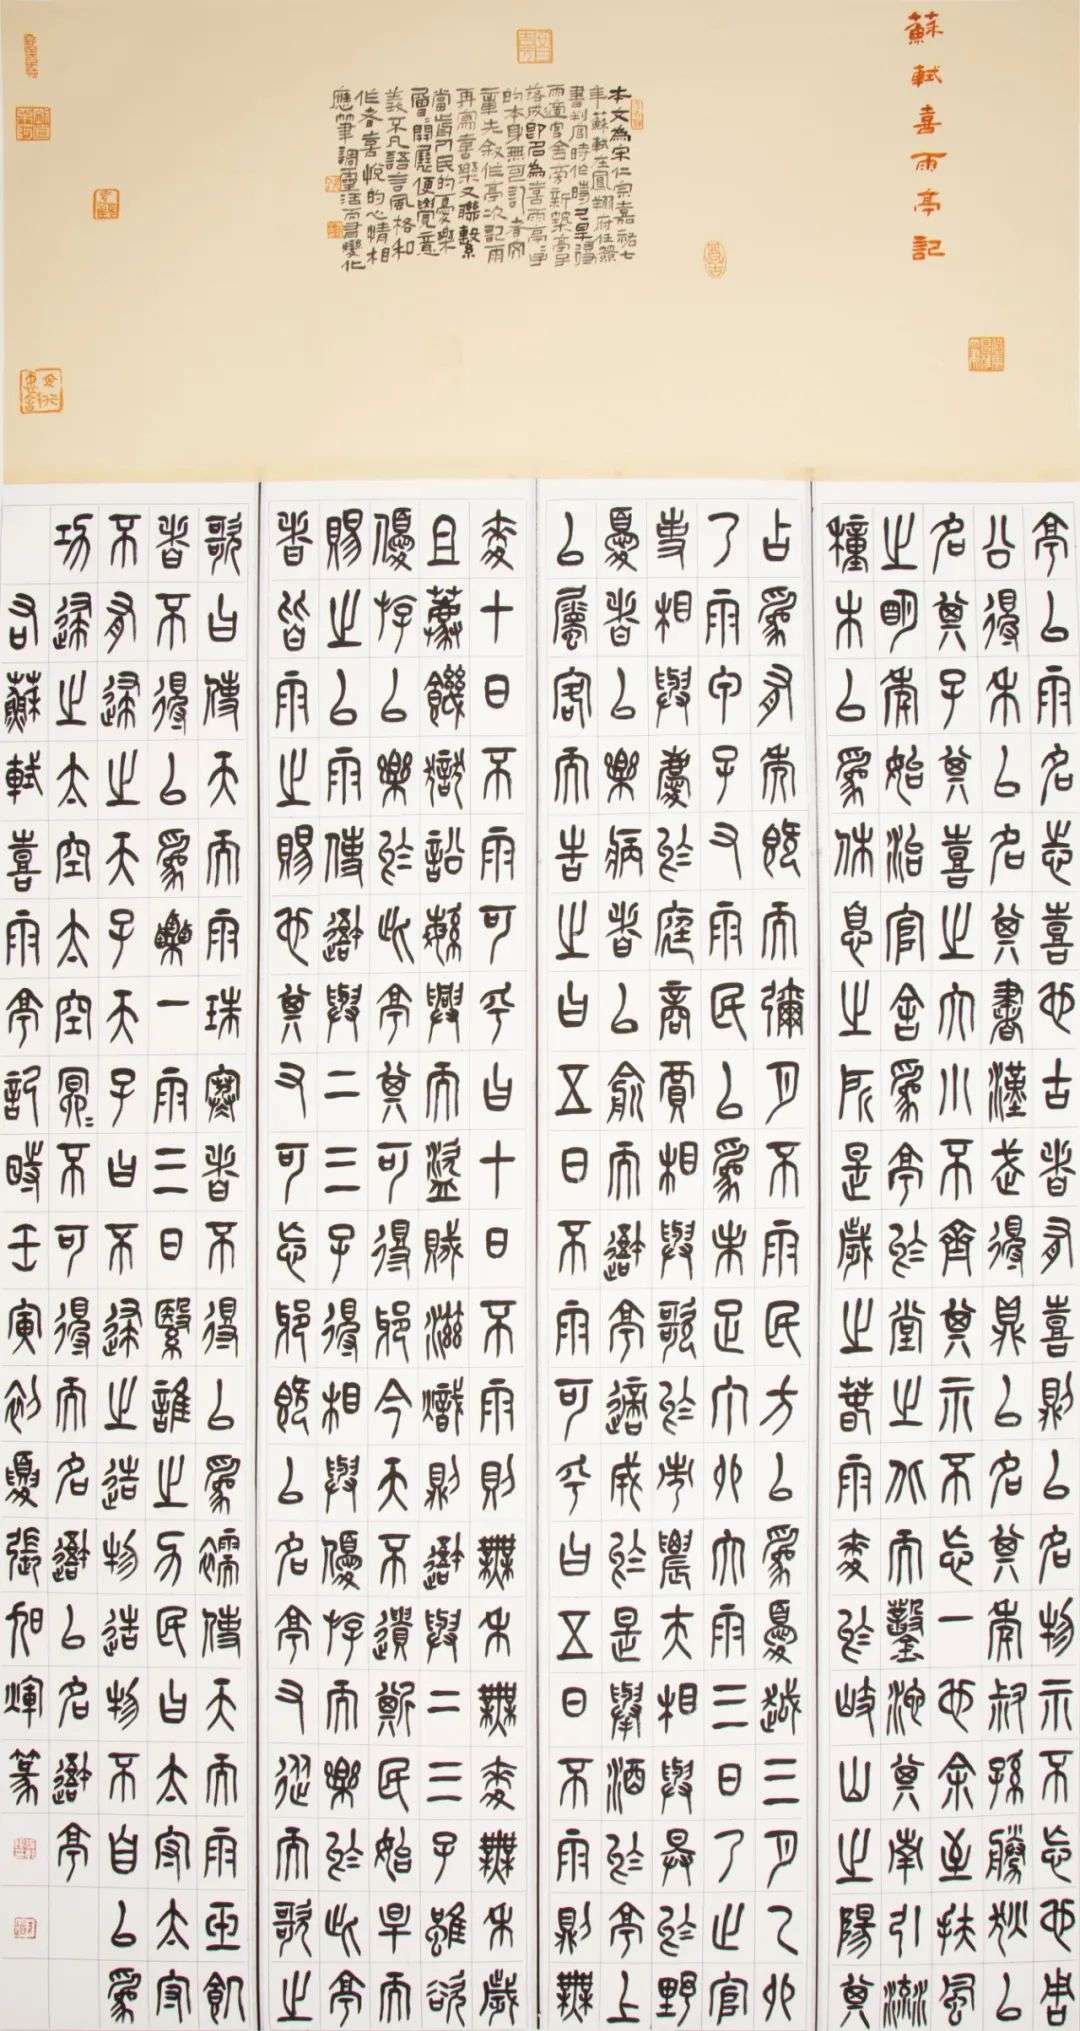 蘇軾喜雨亭記
本文為宋仁宗嘉祐七
年蘇軾在鳳翔府任簽
書判官時作時久旱得
雨適官舍旁新築亭子
落成即名為喜雨亭亭
的本身無可記者文
章先敘作亭次記雨
再寫喜樂又聯繫
當時人民的憂樂
層層開展便覺意
義不凡語言風格和
作者喜悅的心情相
應筆調靈活而富變化
亭以雨名志喜也古者有喜則以名物示不忘也周
公得禾以名其書漢武得鼎以名其年叔孫勝狄以
名其子其喜之大小不齊其示不忘一也余至扶風
之明年始治官舍為亭於堂之北而鑿池其南引流
種木以為休息之所是歲之春雨麥於岐山之陽其
占為有年既而彌月不雨民方以為憂越三月乙卯
乃雨甲子又雨民以為未足丁卯大雨三日乃止官
吏相與慶於庭商賈相與歌於市農夫相與昪於野
憂者以樂病者以愈而吾亭適成於是舉酒於亭上
以屬客而告之曰五日不雨可乎曰五日不雨則無
麥十日不雨可乎曰十日不雨則無禾無麥無禾歲
且薦饑獄訟繁興而盜賊滋熾則吾與二三子雖欲
優游以樂於此亭其可得邪今天不遺斯民始旱而
賜之以雨使吾與二三子得相與優游而樂於此亭
者皆雨之賜也其又可忘邪既以名亭又從而歌之
歌曰使天而雨珠寒者不得以為襦使天而雨玉飢
者不得以為粟一雨三日繄誰之力民曰太守太守
不有歸之天子天子曰不歸之造物造物不自以為
功歸之太空太空冥〻不可得而名吾以名吾亭
右蘇軾喜雨亭記時壬寅初夏張旭煇篆